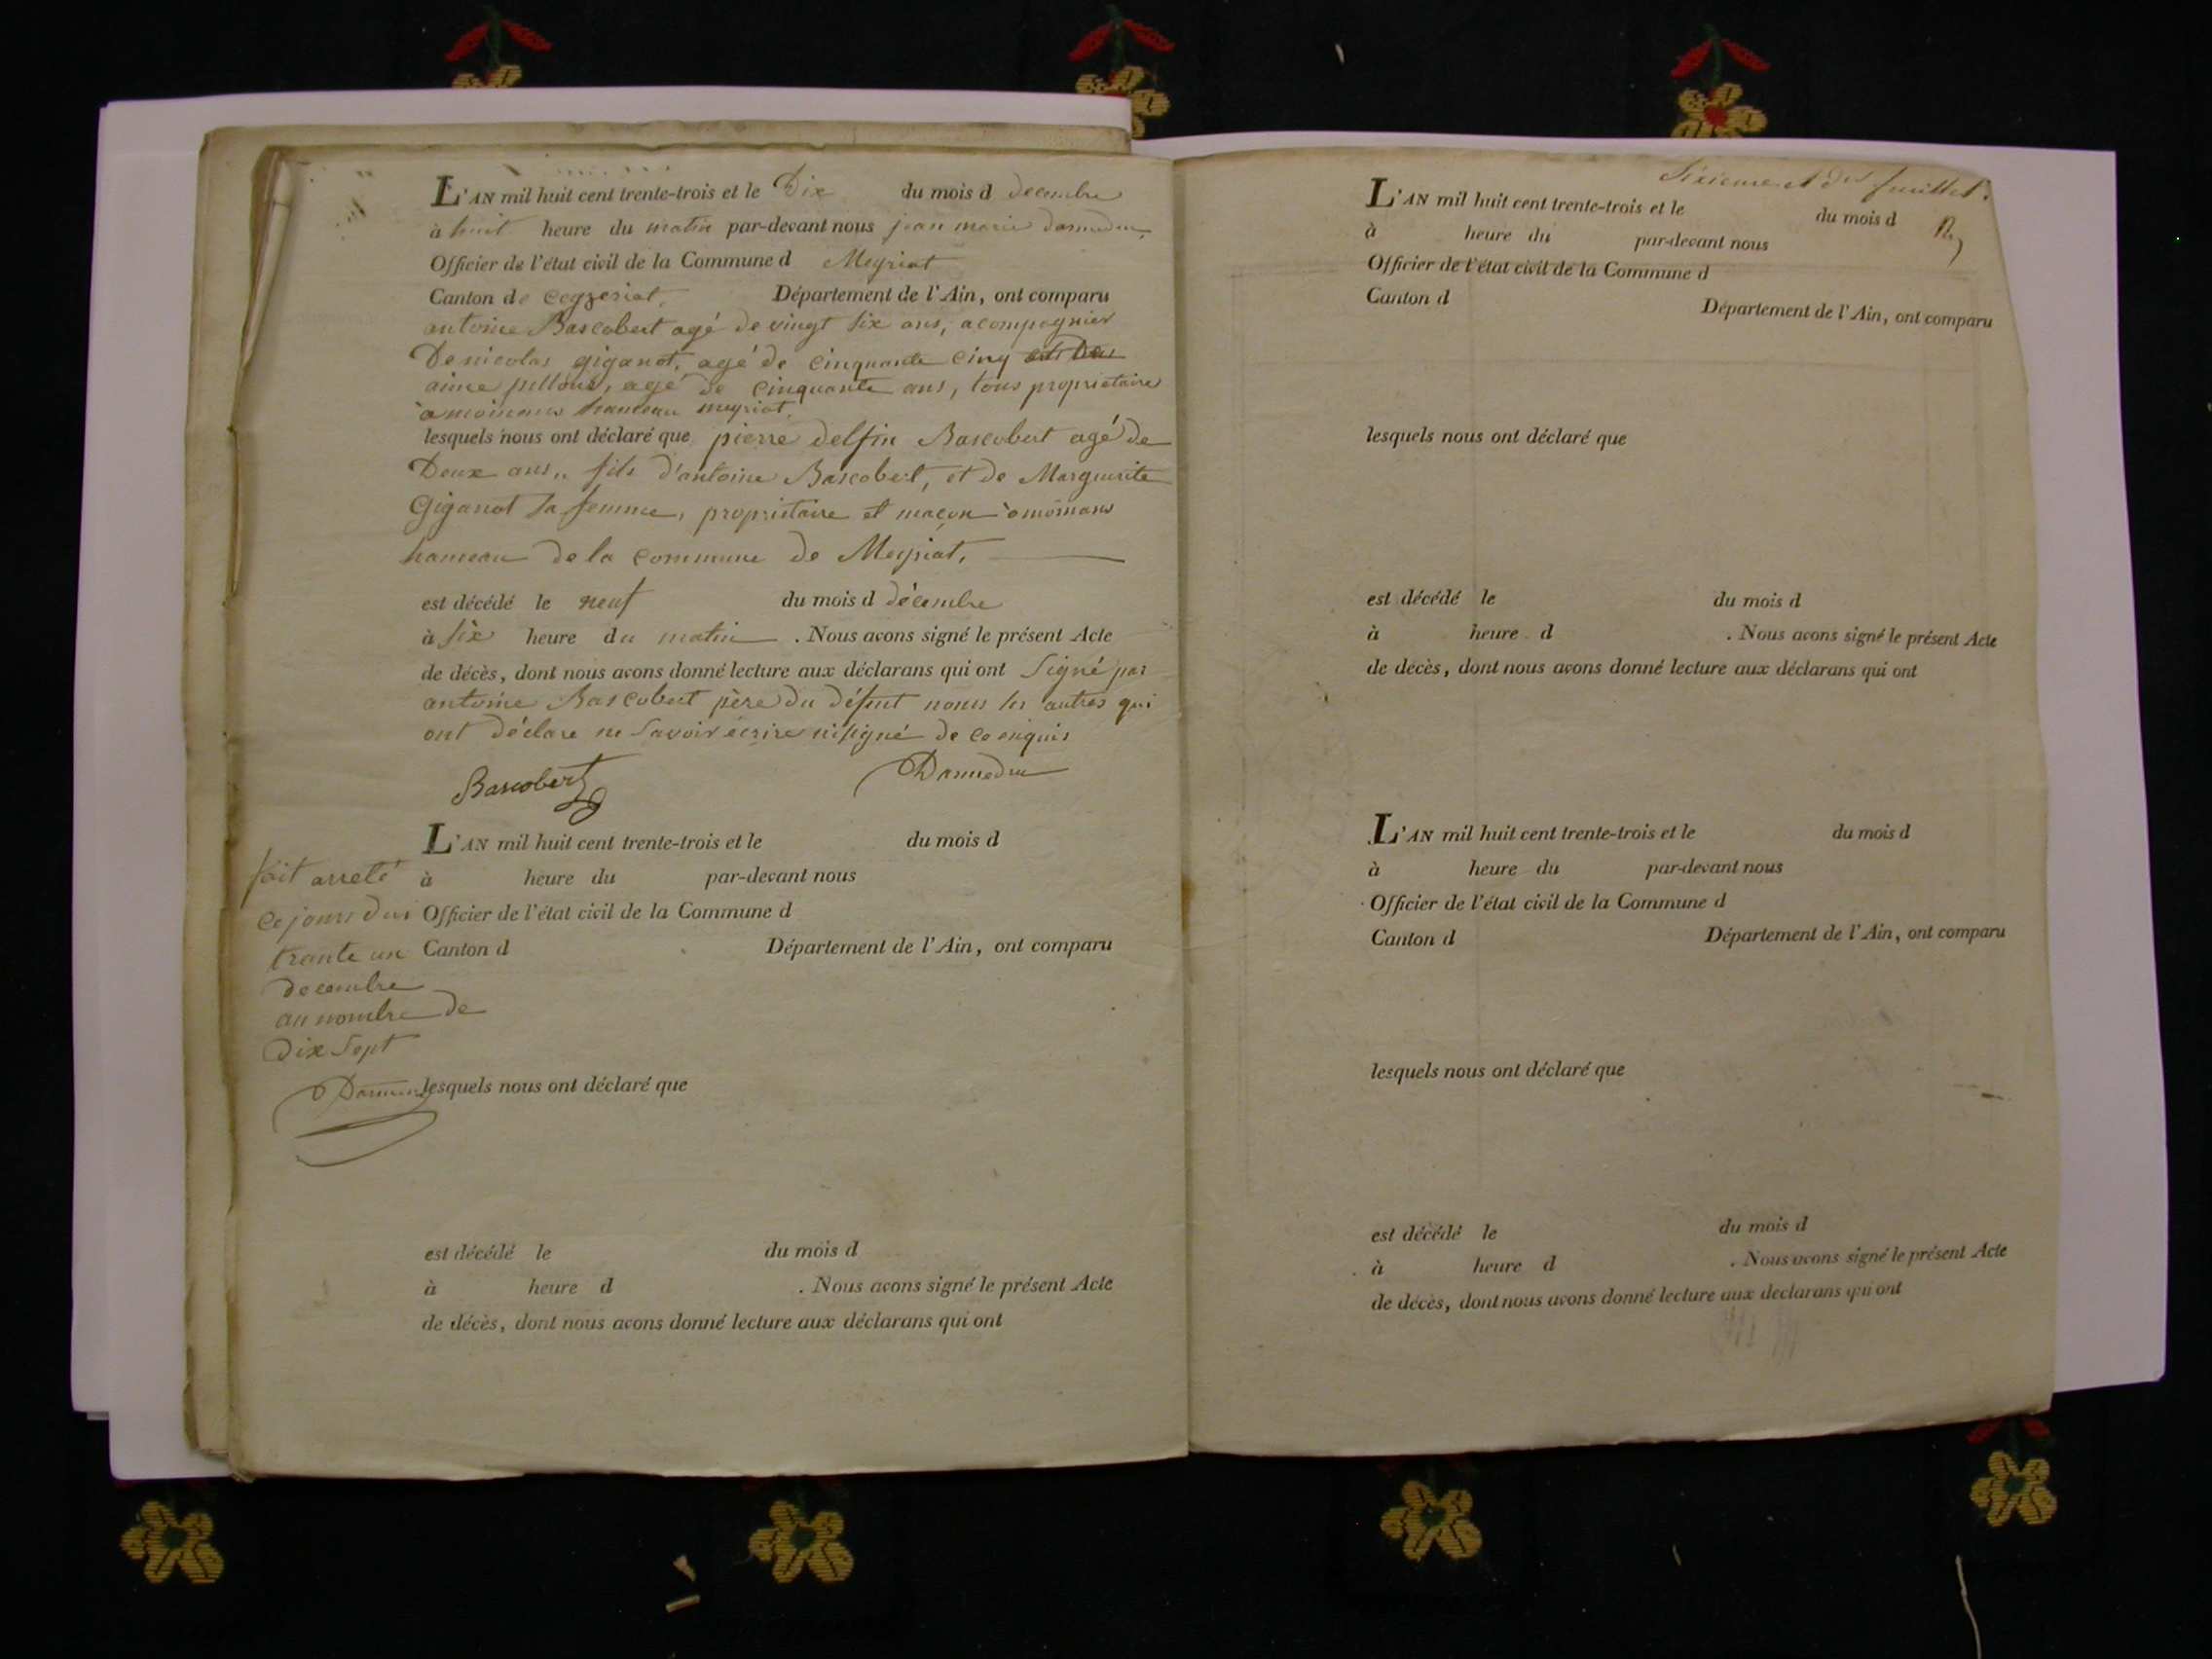 L'AN mil huit cent trente-trois et le Dix du mois d decembre
à huit heure du matin par-devant nous jean marie
Officier de l'état civil de la Commune d Meyriat
Canton de Ceyzeriat, Département de l'Ain, ont comparu
antoine Bascobert agé de vingt six ans, acompagnier
De nicolas giganot, agé de cinquante cinq
aimé agé de cinquante ans, tous proprietaire
a moinans hameau meyriat,
lesquels nous ont déclaré que pierre delfin Bascobert agé de
Deux ans,, fils d'antoine Bascobert, et de Marguerite
Giganot sa femme, proprietaire et maçon à moinans
hameau de la commune de Meyriat,
est décédé le neuf du mois d décembre
à six heure du matin . Nous avons signé le présent Acte
de décès, dont nous avons donné lecture aux déclarans qui ont Signé par
antoine Bascobert père du défunt nomis les autres qui
ont déclare ne Savoir écrire ni signé de ce enquis
Bascobert
L'AN mil huit cent trente-trois et le du mois d
à heure du par-devant nous
Officier de l'état civil de la Commune d
Canton d Département de l'Ain, ont comparu
fait arreté
ce jourdui
trante un
decembre
au nombre de
Dix Sept
lesquels nous ont déclaré que
est décédé le du mois d
à heure d . Nous avons signé le présent Acte
de décès, dont nous avons donné lecture aux déclarans qui ont
Sixieme et der feuillet.
L'AN mil huit cent trente-trois et le du mois d
à heure du par-devant nous
Officier de l'état civil de la Commune d
Canton d Département de l'Ain, ont comparu
lesquels nous ont déclaré que
est décédé le du mois d
à heure d . Nous avons signé le présent Acte
de décès, dont nous avons donné lecture aux déclarans qui ont
L'AN mil huit cent trente-trois et le du mois d
à heure du par-devant nous
Officier de l'état civil de la Commune d
Canton d Département de l'Ain, ont comparu
lesquels nous ont déclaré que
est décédé le du mois d
à heure d . Nous avons signé le présent Acte
de décès, dont nous avons donné lecture aux déclarans qui ont